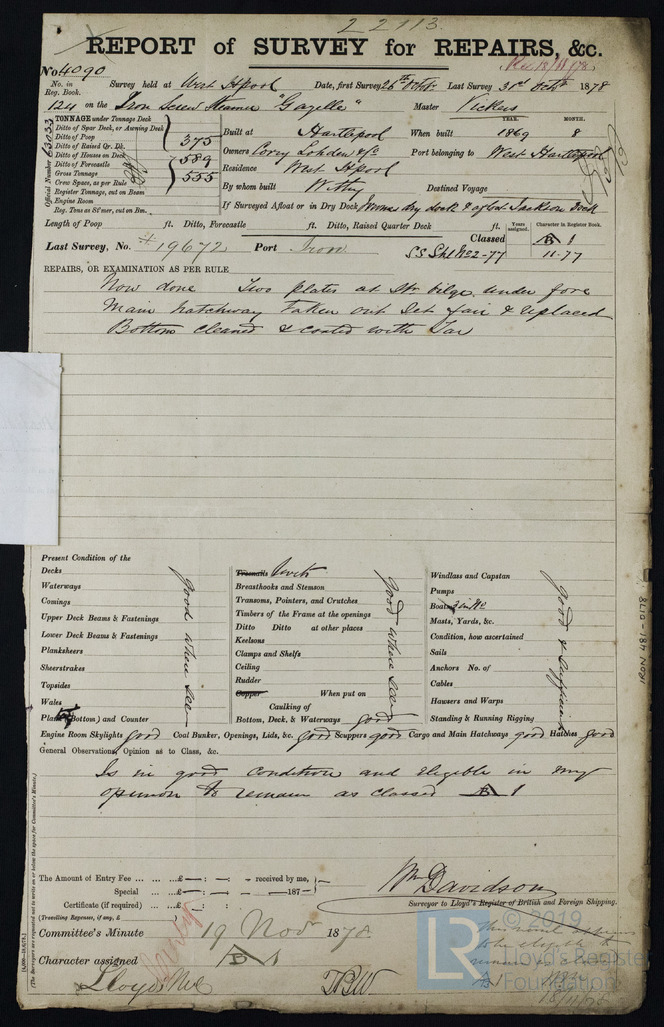 22113.
REPORT of SURVEY for REPAIRS, &c.
No 4090
Survey held at West Hpool Date, first Survey 26th Octr. Last Survey 31st Octr 1878
No. in Reg. Book.
124 on the Iron Screw Steamer "Gazelle" Master Vickers
TONNAGE under Tonnage Deck
Ditto of Spar Deck, or Awning Deck
Ditto of Poop
Ditto of Raised Qr. Dk.
Ditto of Houses on Deck
Ditto of Forecastle
Gross Tonnage
Crew Space, as per Rule
Register Tonnage, cut on Beam
Engine Room
Reg. Tons as St'mer, cut on Bm.
375
589
555
Official Number
Built at Hartlepool When built YEAR. 1869 MONTH. 8
Owners Corey Lohden & Co Port belonging to West Hartlepool
Residence West Hpool
By whom built Withy Destined Voyage
If Surveyed Afloat or in Dry Dock dry dock & afloat Jackson Dock
Length of Poop ft. Ditto, Forecastle ft. Ditto, Raised Quarter Deck ft.
Years assigned. Character in Register Book.
Last Survey, No. 19672 Port Iron Classed
SS Shl No2-77 11-77
REPAIRS, OR EXAMINATION AS PER RULE
Now done Two plates at Str bilge under fore
Main hatchway taken out Set fair & replaced
Bottom cleaned & coated with Tar
Present Condition of the
Decks
Waterways
Comings
Upper Deck Beams & Fastenings
Lower Deck Beams & Fastenings
Planksheers
Sheerstrakes
Topsides
Wales
Plank (Bottom) and Counter
good where seen
Treenails Rivets
Breasthooks and Stemson
Transoms, Pointers, and Crutches
Timbers of the Frame at the openings
Ditto Ditto at other places
Keelsons
Clamps and Shelfs
Ceiling
Rudder
Copper When put on
Caulking of
Bottom, Deck, & Waterways good
good where seen
Windlass and Capstan
Pumps
Boats 3 in No
Masts, Yards, &c.
Condition, how ascertained
Sails
Anchors No. of
Cables
Hawsers and Warps
Standing & Running Rigging
good & sufficient
Engine Room Skylights good Coal Bunker, Openings, Lids, &c. good Scuppers good Cargo and Main Hatchways good Hatches good
General Observations, Opinion as to Class, &c.
Is in good condition and eligible in my
opinion to remain as classed A 1
The Amount of Entry Fee £ : : received by me,
Special £ : : 187
Certificate (if required) £ : :
(Travelling Expenses, if any, £
Wm Davidson
Surveyor to Lloyd's Register of British and Foreign Shipping.
Committee's Minute 19 Novr 1878.
Character assigned
(The Surveyors are requested not to write on or below the space for Committee's Minute.)
LR
© 2019
Lloyd's Register
Foundation